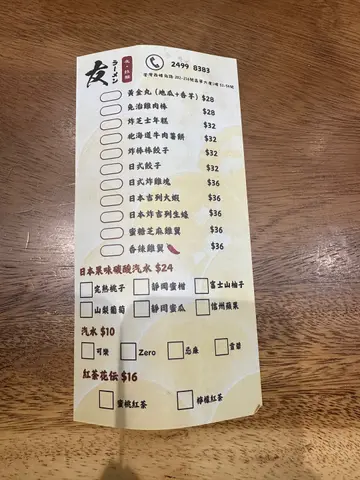 友
ラーメン
2499 8383
黃金丸（地瓜+香芋） $28
免治雞肉棒 $28
炸芝士年糕 $32
北海道牛肉薯餅 $32
炸棒棒餃子 $32
日式餃子 $32
日式炸雞塊 $36
日本吉列大蝦 $36
日本炸吉列生蠔 $36
蜜糖芝麻雞翼 $36
香辣雞翼 $36
日本果味碳酸汽水 $24
完熟桃子 靜岡蜜柑 富士山柚子
山梨葡萄 靜岡蜜瓜 信州蘋果
汽水 $10
可樂 Zero 忌廉 雪碧
紅茶花伝 $16
蜜桃紅茶 檸檬紅茶